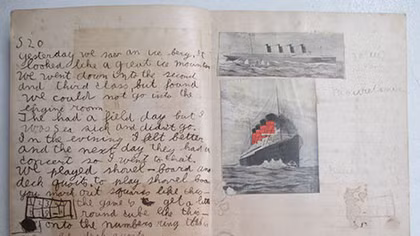 S 20
Yesterday we saw an ice berg. It
looked like a great ice mountain
We went down into the second
and third class but found
we could not go into the
engine room.
The had a field day but I
was sea sick and didnt go.
In the evening I felt better
and the next day they had a
concert so I went to that.
We played shovel-board and
deck quoits, to play shovel board
you mark out squares like this
the game is to get a
round cube like this
onto the numbers ring